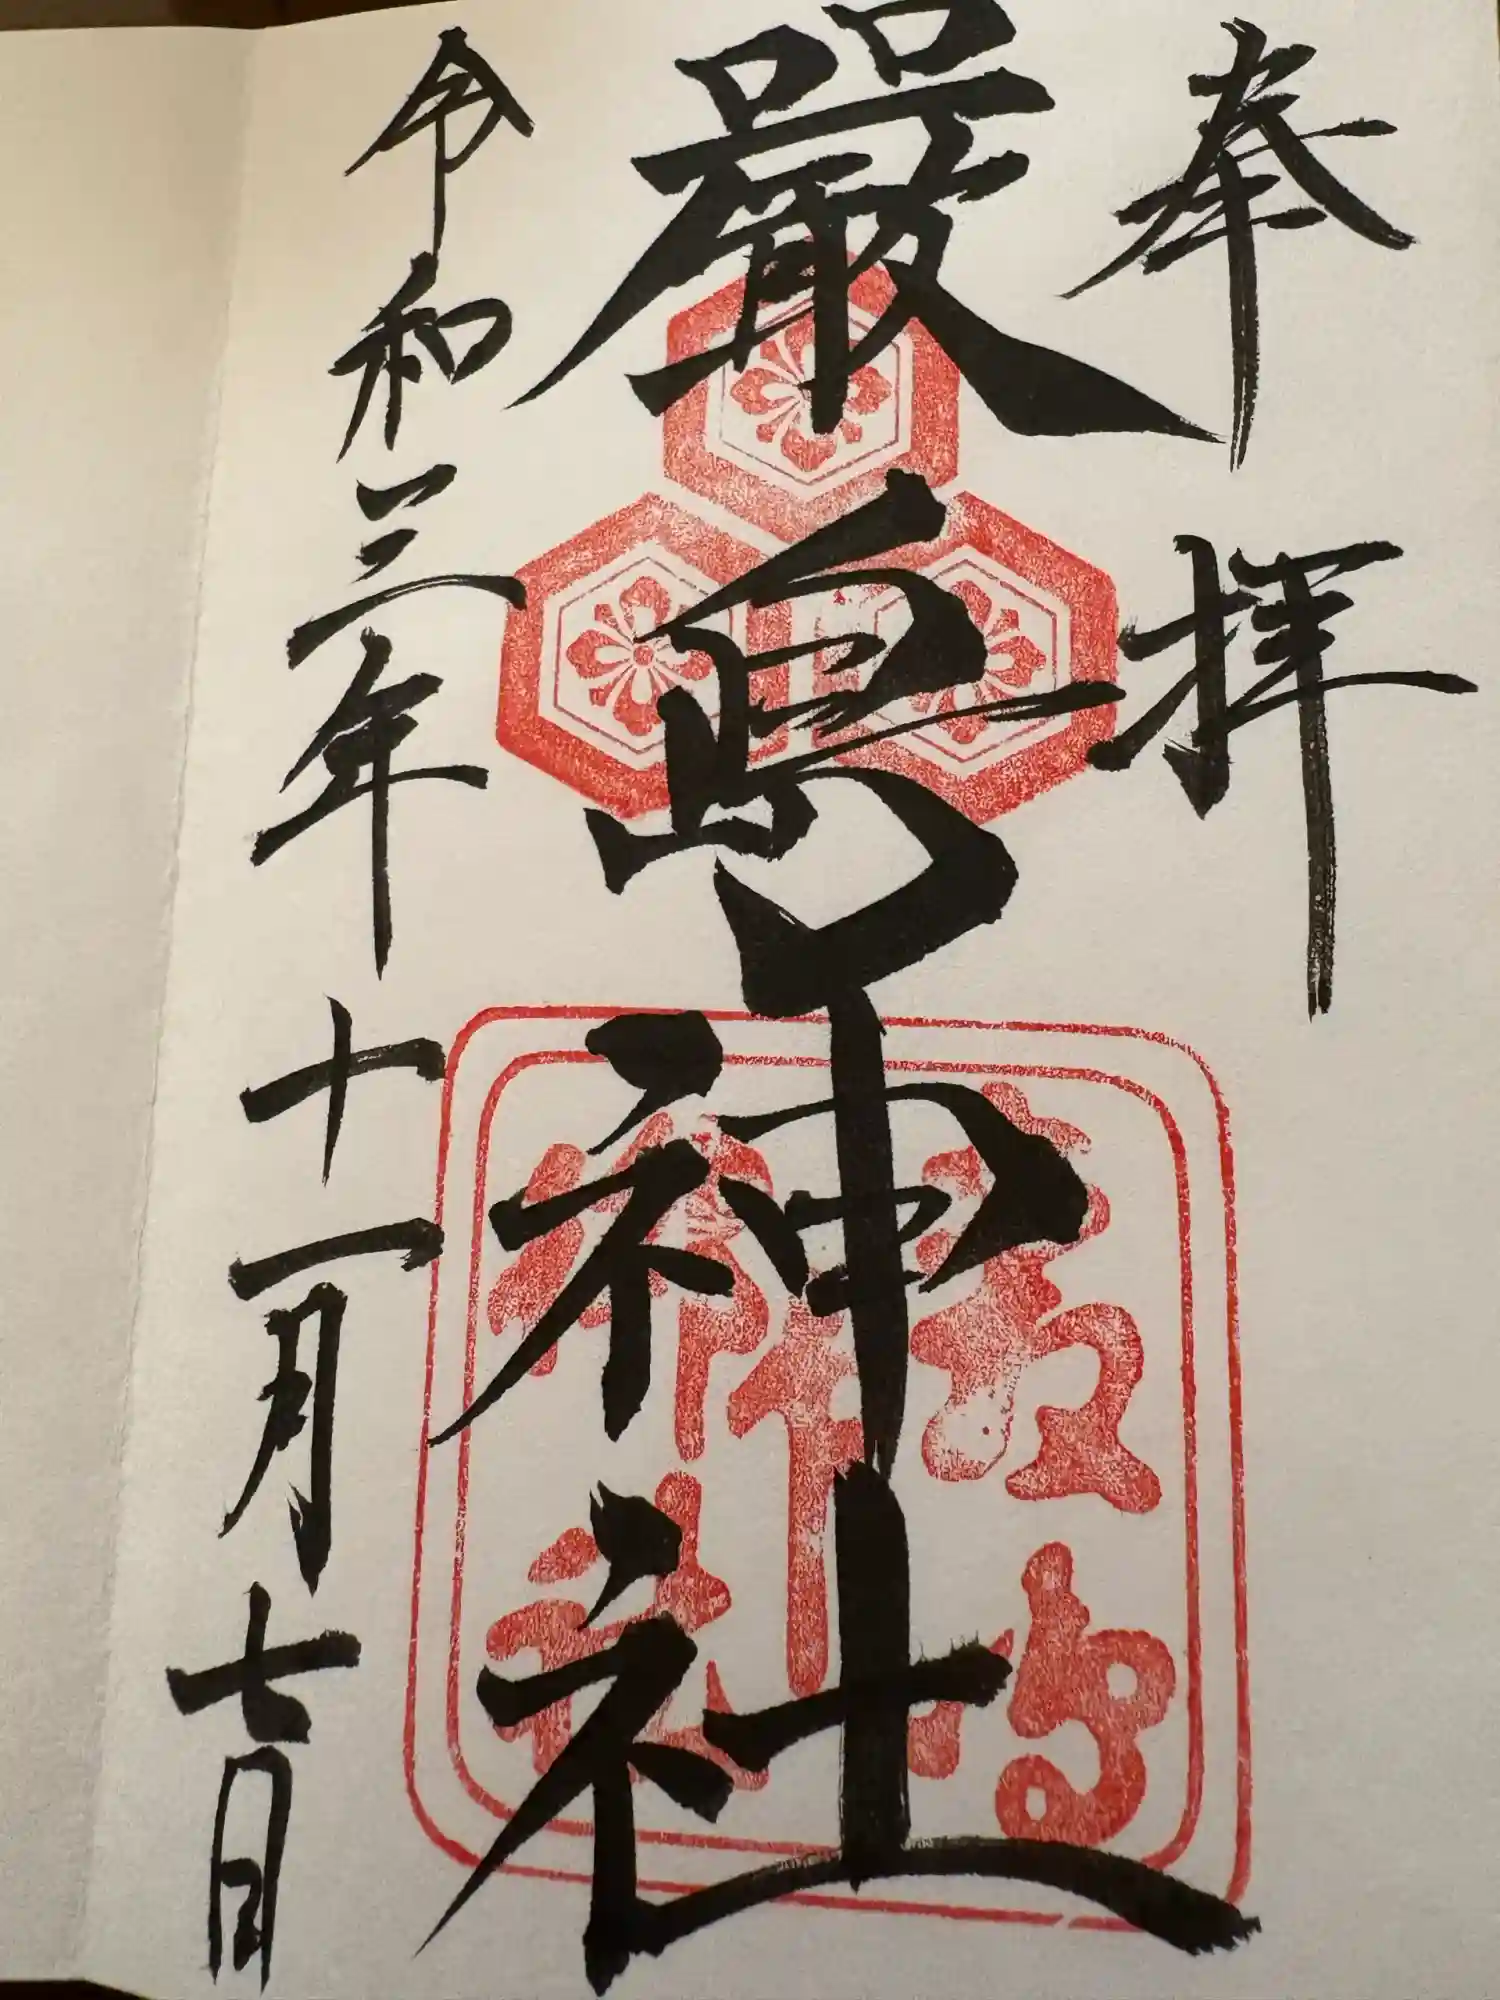 奉拝
嚴島神社
令和三年十一月七日
嚴島
神社